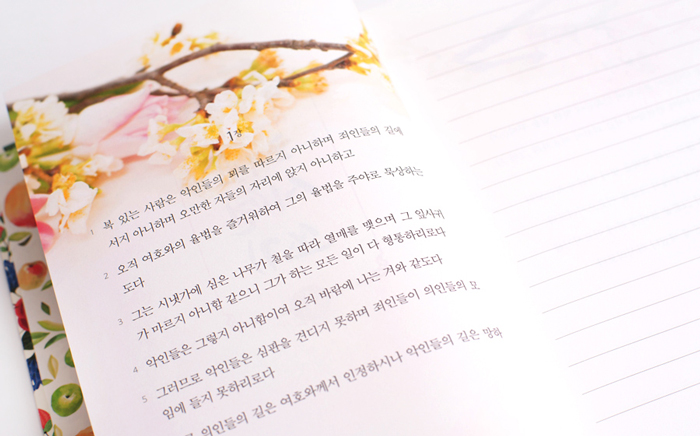 1장
1 복 있는 사람은 악인들의 꾀를 따르지 아니하며 죄인들의 길에
서지 아니하며 오만한 자들의 자리에 앉지 아니하고
2 오직 여호와의 율법을 즐거워하여 그의 율법을 주야로 묵상하는
도다
3 그는 시냇가에 심은 나무가 철을 따라 열매를 맺으며 그 잎사귀
가 마르지 아니함 같으니 그가 하는 모든 일이 다 형통하리로다
4 악인들은 그렇지 아니함이여 오직 바람에 나는 겨와 같도다
5 그러므로 악인들은 심판을 견디지 못하며 죄인들이 의인들의 모
임에 들지 못하리로다
의인들의 길은 여호와께서 인정하시나 악인들의 길은 망하